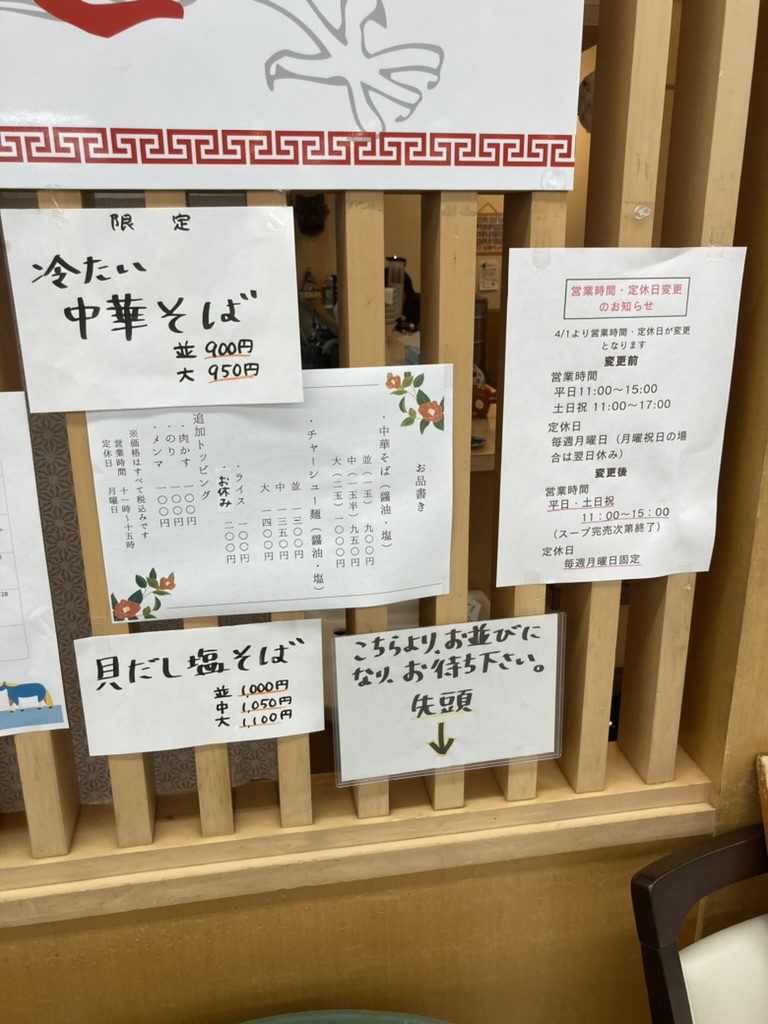 限定
冷たい
中華そば
並 900円
大 950円
お品書き
・中華そば（醤油・塩）
並（一玉） 九〇〇円
中（一玉半） 九五〇円
大（二玉） 一〇〇〇円
・チャーシュー麺（醤油・塩）
並 一三〇〇円
中 一三五〇円
大 一四〇〇円
・ライス 一〇〇円
・お休み 二〇〇円
追加トッピング
・肉かす 一〇〇円
・のり 一〇〇円
・メンマ 一〇〇円
※価格はすべて税込みです
営業時間 十一時〜十五時
定休日 月曜日
貝だし塩そば
並 1,000円
中 1,050円
大 1,100円
こちらより、お並びに
なり、お待ち下さい。
先頭
↓
営業時間・定休日変更
のお知らせ
4/1より営業時間・定休日が変更
となります
変更前
営業時間
平日11:00〜15:00
土日祝 11:00〜17:00
定休日
毎週月曜日（月曜祝日の場
合は翌日休み）
変更後
営業時間
平日・土日祝
11：00〜15：00
（スープ完売次第終了）
定休日
毎週月曜日固定
28